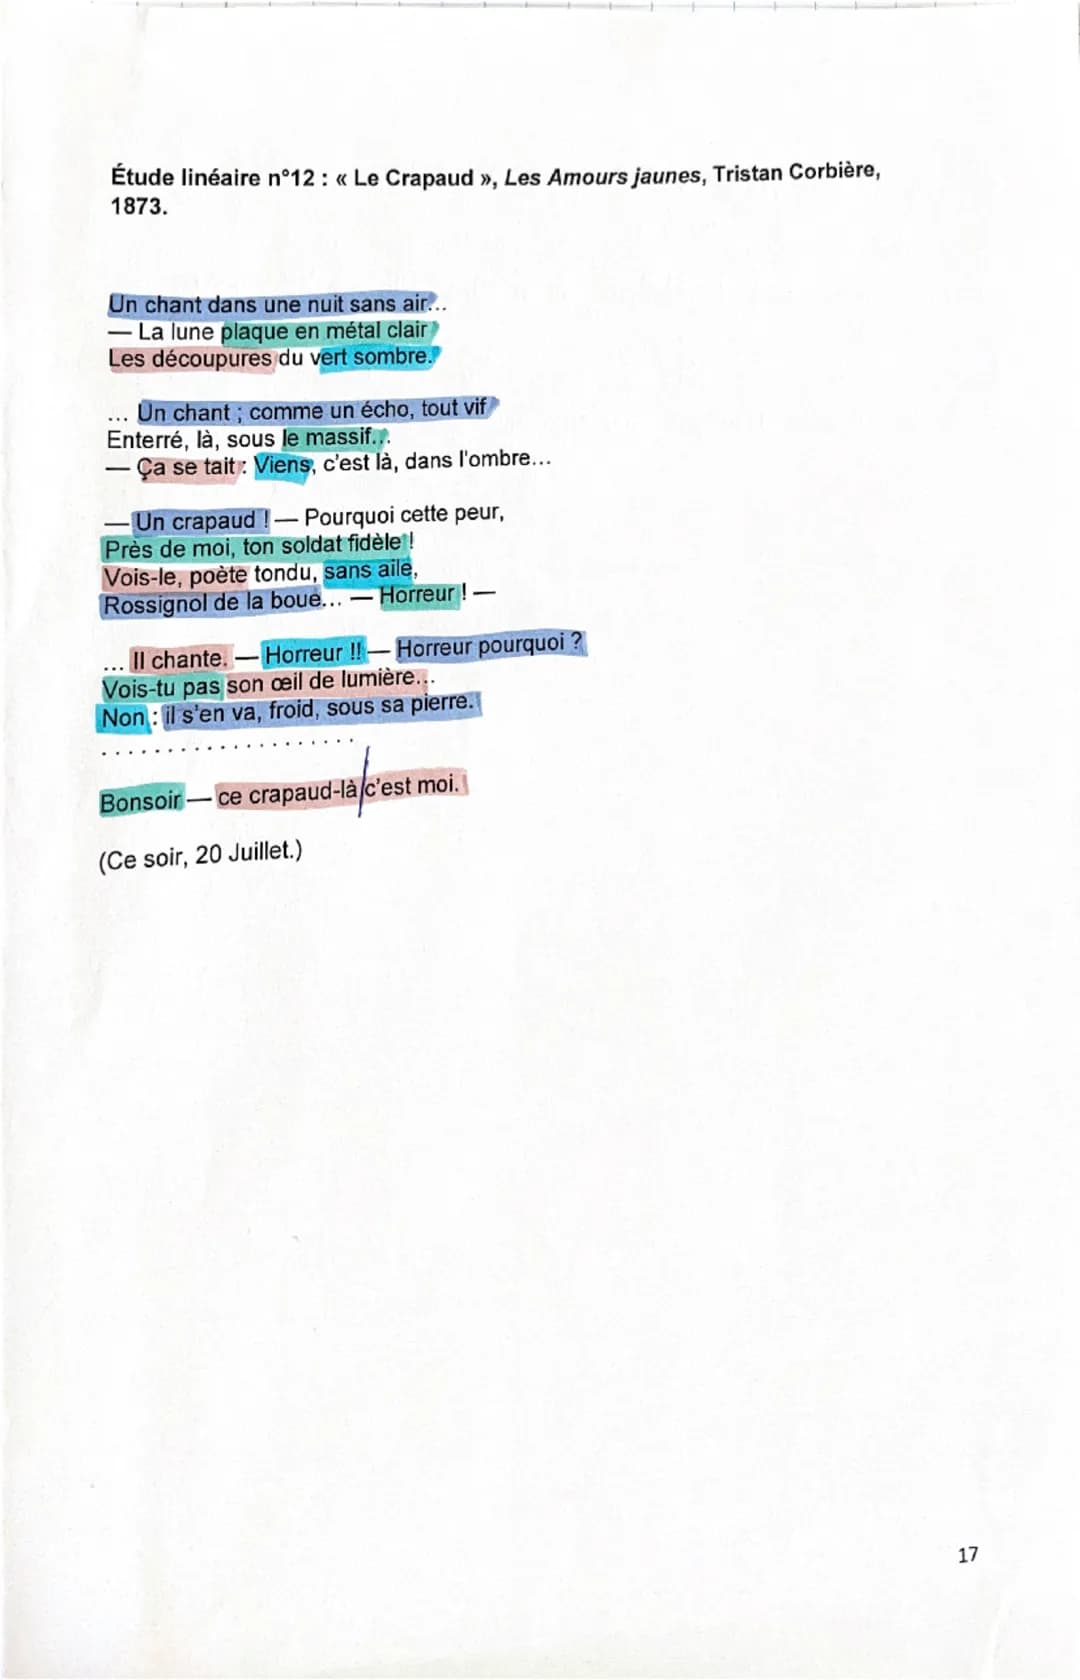 Étude linéaire n°12 : « Le Crapaud », Les Amours jaunes, Tristan Corbière,
1873.
Un chant dans une nuit sans air...
— La lune plaque en métal clair
Les découpures du vert sombre.
... Un chant ; comme un écho, tout vif
Enterré, là, sous le massif...
— Ça se tait : Viens, c'est là, dans l'ombre...
— Un crapaud ! — Pourquoi cette peur,
Près de moi, ton soldat fidèle !
Vois-le, poète tondu, sans aile,
Rossignol de la boue... — Horreur ! —
... Il chante. — Horreur !! — Horreur pourquoi ?
Vois-tu pas son œil de lumière...
Non : il s'en va, froid, sous sa pierre.
. . . . . . . . . . . . . . . . . . . .
Bonsoir — ce crapaud-là c'est moi.
(Ce soir, 20 Juillet.)
17